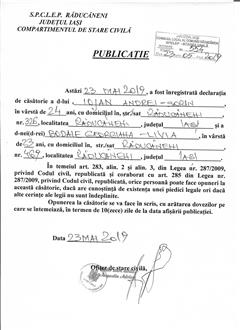 S.P.C.L.E.P. RĂDUCĂNENI
JUDEŢUL IAŞI
COMPARTIMENTUL DE STARE CIVILĂ
PUBLICAŢIE
Astăzi 23 MAI 2019, a fost înregistrată declaraţia
de căsătorie a d-lui, ANDREI-SORIN
în vârstă de 24 ani, cu domiciliul în, str./sat RĂDUCĂNENI
nr. 326, localitatea RĂDUCĂNENI, judeţul IAŞI şi
d-nei(d-rei) GEORGIANA-LIVIA, în vârstă
de 23 ani, cu domiciliul în, str./sat RĂDUCĂNENI
nr. 469, localitatea RĂDUCĂNENI, judeţul IAŞI
În temeiul art. 283, alin. 2 şi alin. 3, din Legea nr. 287/2009,
privind Codul civil, republicată şi coroborat cu art. 285 din Legea nr.
287/2009, privind Codul civil, republicată, orice persoană poate face opuneri la
această căsătorie, dacă are cunoştinţă de existenţa unei piedici legale ori dacă
alte cerinţe ale legii nu sunt îndeplinite.
Opunerea la căsătorie se va face în scris, cu arătarea dovezilor pe
care se întemeiază, în termen de 10(zece) zile de la data afişării publicaţiei.
Data 23 MAI 2019
Ofiţer de stare civilă,